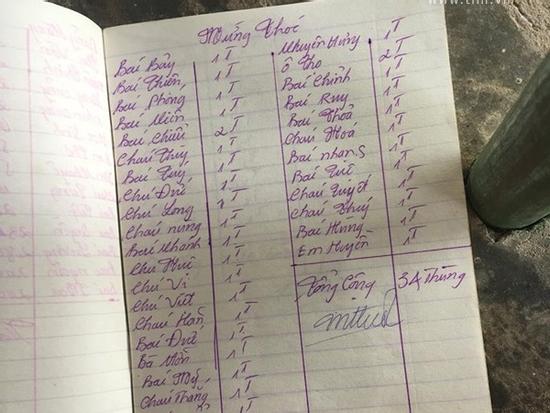 Mừng Thóc
Bái Bảy 1T
Bái Thiên 1T
Bái Phóng 1T
Bái Miên 1T
Bái Chiều 2T
Cháu Thủy 1T
Bái Túy 1T
Chú Đuê 1T
Chú Long
Cháu nung 1T
Bái Khanh 1T
Chú Huê 1T
Chú Vi 1T
Chú Việt 1T
Cháu Hoằn 1T
Bái Duê 1T
Bà Mơn 1T
Bái Mỹ 1T
Cháu Thắng 1T
Nhuyên Hưng 1T
Ô Thọ 2T
Bái Chinh 1T
Bái Ruy 1T
Bái Thoả 1T
Cháu Hoá 1T
Bái nhang 1T
Bái Tuê 1T
Cháu Tuyết 1T
Cháu Thuý 1T
Bái Hưng 1T
Em Huyền 1T
Tổng Cộng 34 Thùng